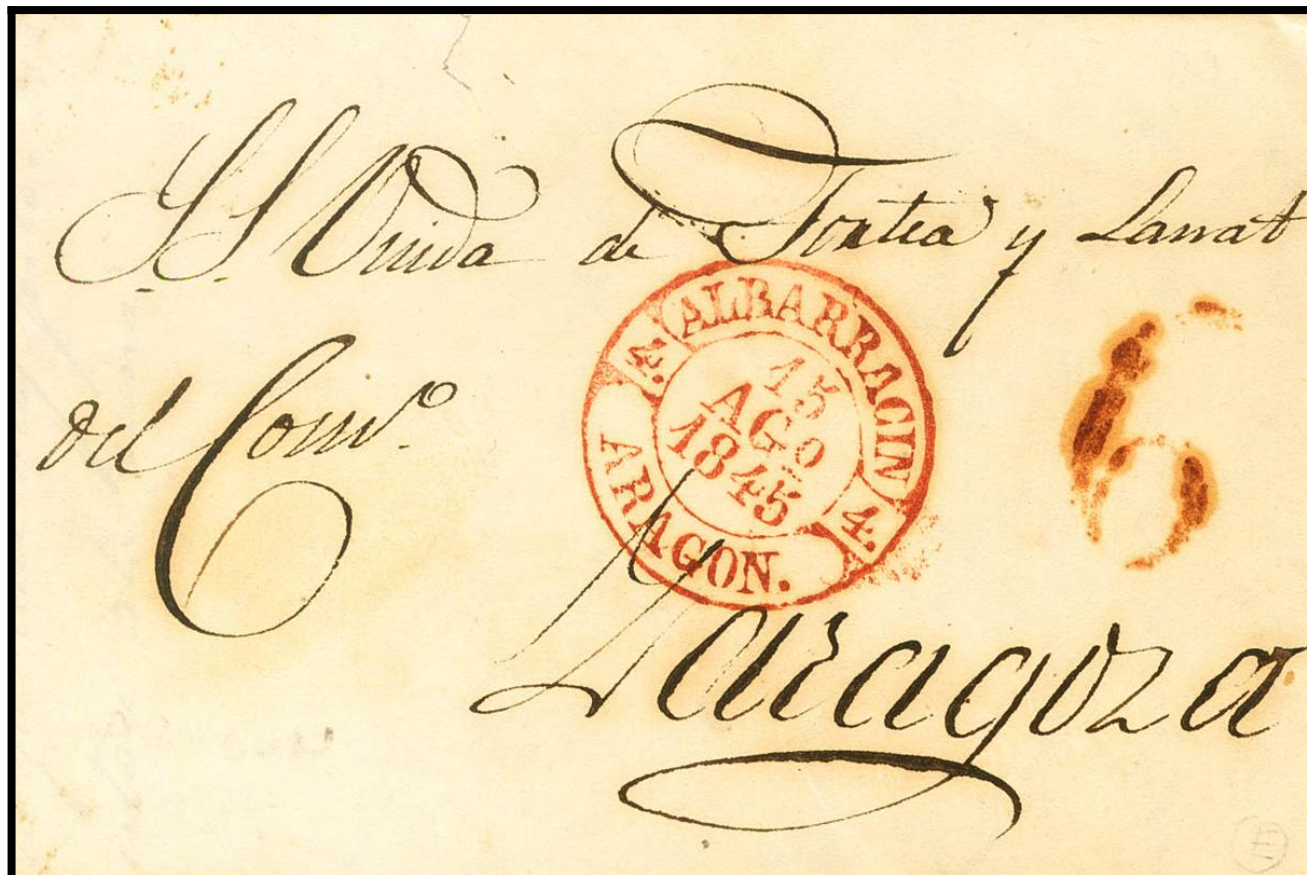 S.S. Viuda de Fortea y Lanat
del Comº.
4. ALBARRACIN 4.
15
AGO
1845
ARAGON.
6
Zaragoza
E